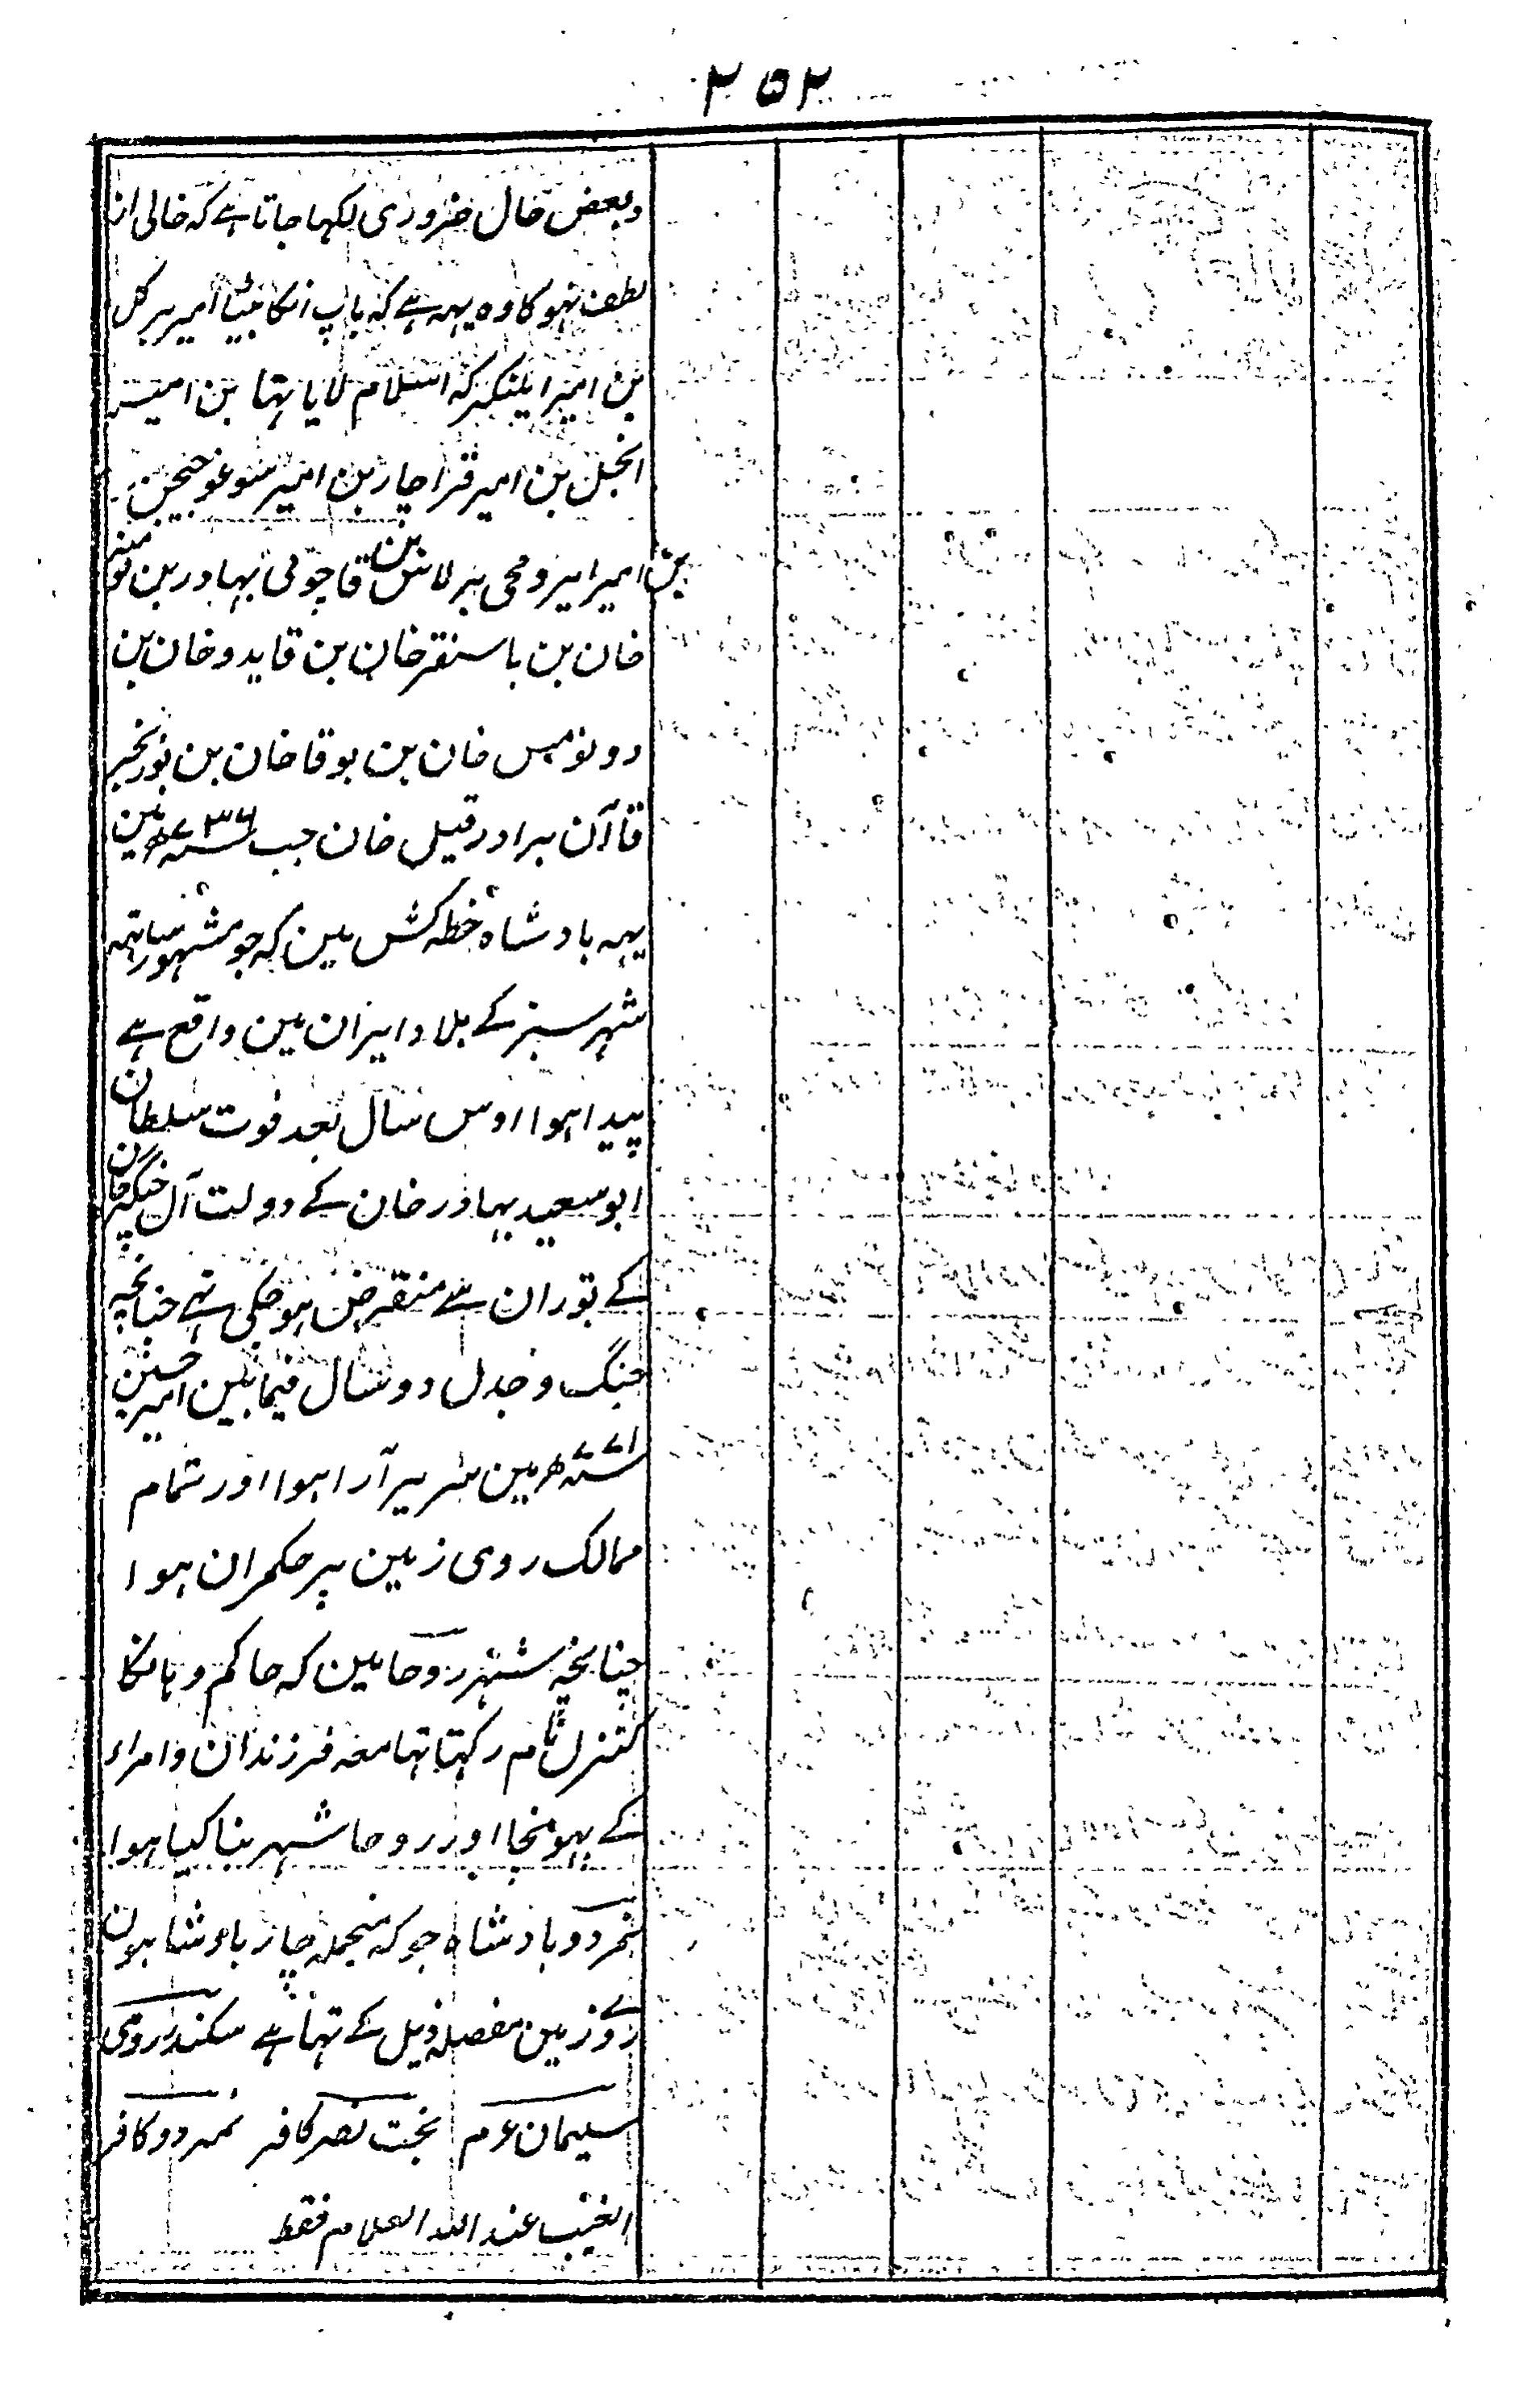 ۲۵۲
وبعض حال ضروری لکہا جاتا ہے کہ خالی از
لطف نہو کا وہ یہہ ہے کہ باپ انکا بیٹا امیر برکل
بن امیر ایلنکیر کہ اسلام لایا تہا بن امیر
انجل بن امیر قراچار بن امیر سوغوجیجن
بن امیر ایرومجی برلاس بن قاچولی بہادر بن تومنہ
خان بن باسنقر خان بن قایدوخان بن
دوتومین خان بن بوقا خان بن بوزنجیر
قاآن برادر قبل خان جب سنہ ۷۳۶ھ مین
یہہ بادشاہ خطہ کش مین کہ جو مشہور ساتہہ
شہر سبز کے بلاد ایران مین واقع ہے
پیدا ہوا اوس سال بعد فوت سلطان
ابوسعید بہادر خان کے دولت آل چنگیز خان
کے توران سے منقرض ہو چکی تہے چنانچہ
جنگ و جدل دو سال فیما بین امیر حسین
سنہ ۷۷۱ھ مین سریر آرا ہوا اور تمام
ممالک روی زمین پر حکمران ہوا
چنانچہ شہر روحا مین کہ حاکم وہانکا
کنزل نام رکہتا تہا معہ فرزندان و امراء
کے پہونچا اور روحا شہر بنا کیا ہوا
نمردو بادشاہ جو کہ منجملہ چار بادشاہون
روے زمین مفصلہ ذیل کے تہا ہے سکندر رومی
سلیمان ع م بخت نصر کافر نمردو کافر
الغیب عند اللہ العلام فقط